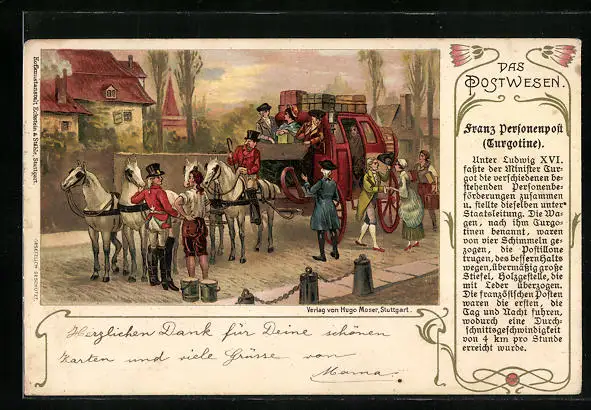 DAS
POSTWESEN.
Franz Personenpost
(Turgotine).
Unter Ludwig XVI.
faßte der Minister Tur-
got die verschiedenen be-
stehenden Personenbe-
förderungen zusammen
u. stellte dieselben unter
Staatsleitung. Die Wa-
gen, nach ihm Turgo-
tinen benannt, waren
von vier Schimmeln ge-
zogen, die Postillone
trugen, des bessern Halts
wegen, übermäßig große
Stiefel, Holzgestelle, die
mit Leder überzogen.
Die französischen Posten
waren die ersten, die
Tag und Nacht fuhren,
wodurch eine Durch-
schnittsgeschwindigkeit
von 4 km pro Stunde
erreicht wurde.
Hofkunstanstalt Eckstein & Stähle, Stuttgart.
GESETZLICH GESCHÜTZT.
Verlag von Hugo Moser, Stuttgart.
Herzlichen Dank für Deine schönen
Karten und viele Grüsse von
Mama.